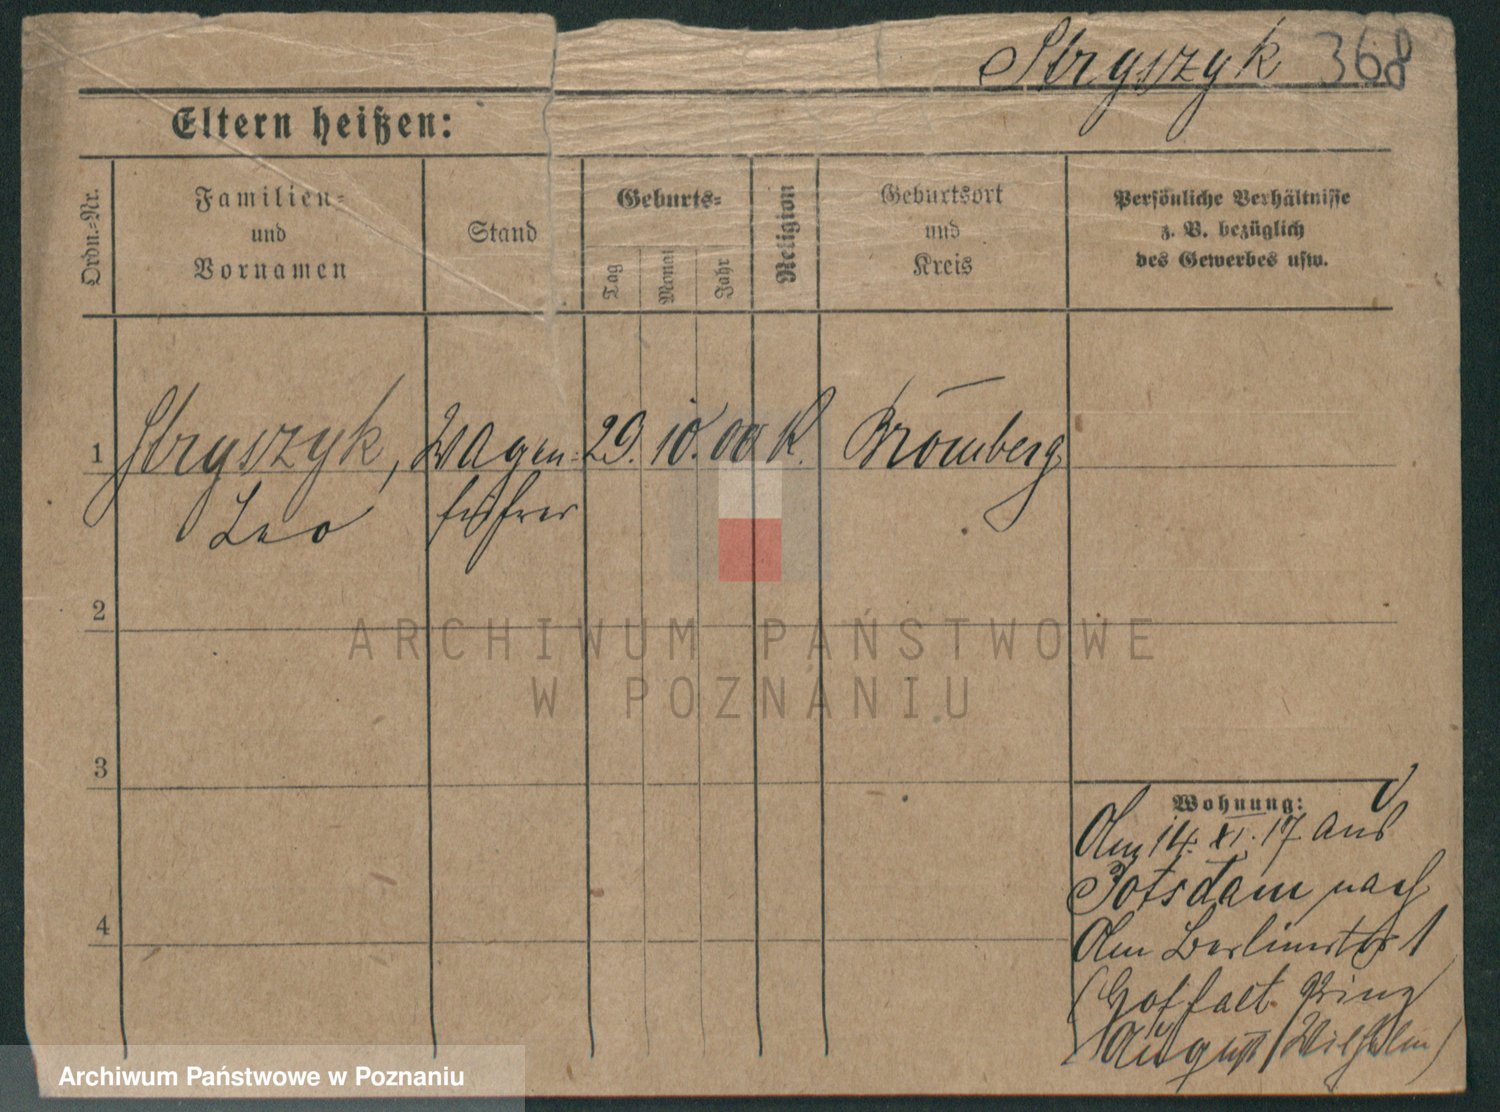 Stryszyk 368
Eltern heißen:
Ordn.-Nr.
Familien-
und
Vornamen
Stand
Geburts-
Tag
Monat
Jahr
Religion
Geburtsort
und
Kreis
Persönliche Verhältnisse
z. B. bezüglich
des Gewerbes usw.
1 Stryszyk, Wagen- 29. 10. 00 K. Bromberg
Leo führer
2
3
4
Wohnung:
Am 14. XI. 17 aus
Potsdam nach
Am Berlinertor 1
(Hofhalt Prinz
August Wilhelm)
ARCHIWUM PAŃSTWOWE
W POZNANIU
Archiwum Państwowe w Poznaniu